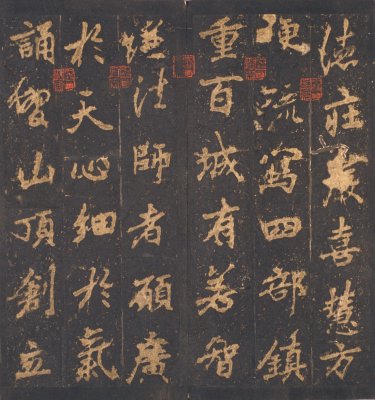 法莊嚴喜慧方
便疏寫四部鎮
重百城有若智
謙法師者願廣
於天心細於氣
誦習山頂創立